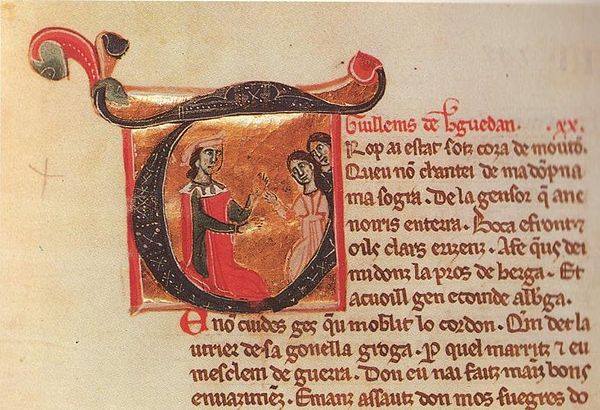 Guillems de bguedan. .xx.
Rop ai estat sotz coza de mouto.
Queu nō chantei de madōpna
ma sogra. De la gensor q̄ anc
noiris enterra. Boca efront ⁊
oils clars
midonz la pros de berga. Et
acuoill gen ecoinde
E nō cuides ges q̄u moblit lo cordon. Qm det la
utrier de sa gonella groga. P quel marritz ⁊ eu
mesclem de guerra. Don eu nai faitz maiz bons
enuazimēz. Emanz assautz don mos fuegros do